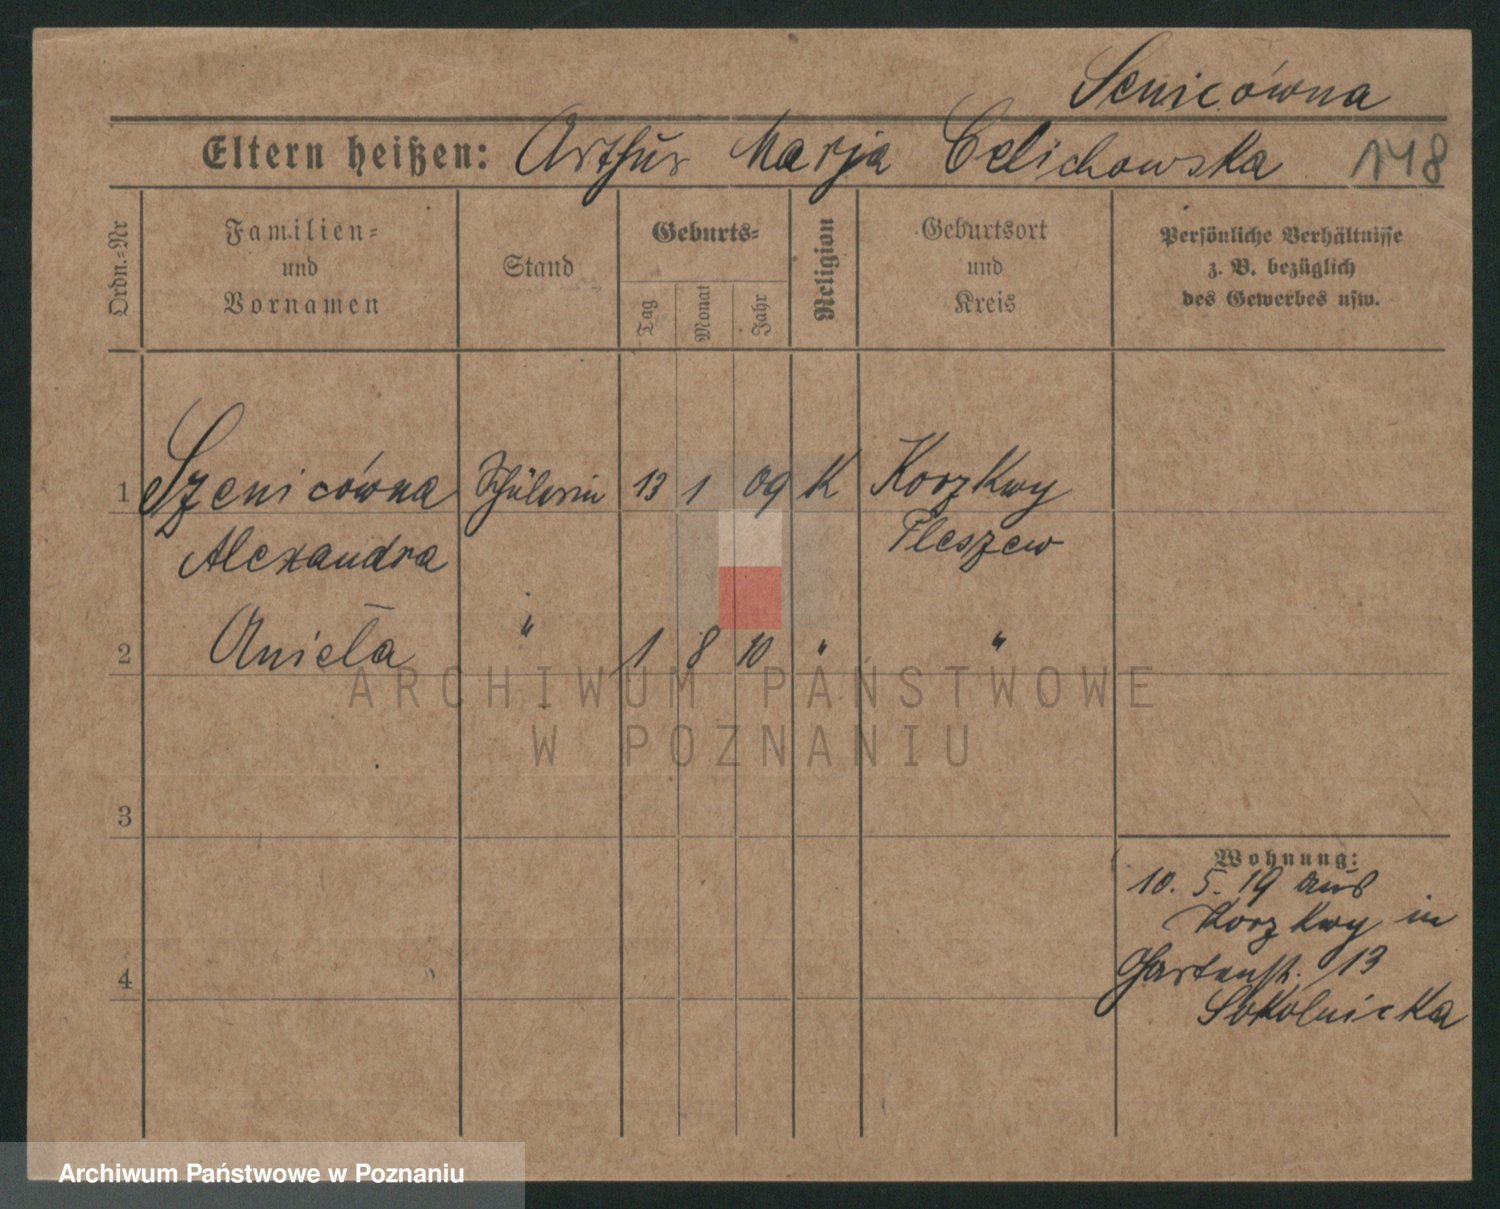 Scnicówna
Eltern heißen: Arthur Marja Celichowska 148
Ordn.-Nr
Familien-
und
Vornamen
Stand
Geburts-
Tag
Monat
Jahr
Religion
Geburtsort
und
Kreis
Persönliche Verhältnisse
z. B. bezüglich
des Gewerbes usw.
1 Szenicówna Schülerin 13 1 09 K Korzkwy
Alexandra Pleszew
2 Anieła " 1 8 10 " "
3
4
Wohnung:
10. 5. 19 aus
Korzkwy in
Gartenstr. 13
Sokolnicka
ARCHIWUM PAŃSTWOWE
W POZNANIU
Archiwum Państwowe w Poznaniu